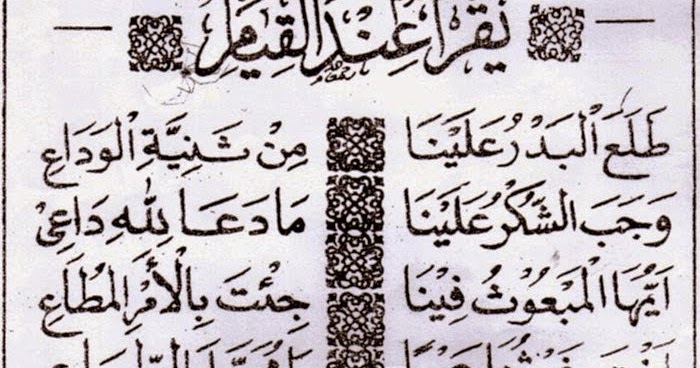 يُقْرَأُ عِنْدَ الْقِيَامِ
طَلَعَ الْبَدْرُ عَلَيْنَا مِنْ ثَنِيَّةِ الْوَدَاعِ
وَجَبَ الشُّكْرُ عَلَيْنَا مَا دَعَا لِلّٰهِ دَاعِيْ
اَيُّهَا الْمَبْعُوْثُ فِيْنَا جِئْتَ بِالْأَمْرِ الْمُطَاعِ